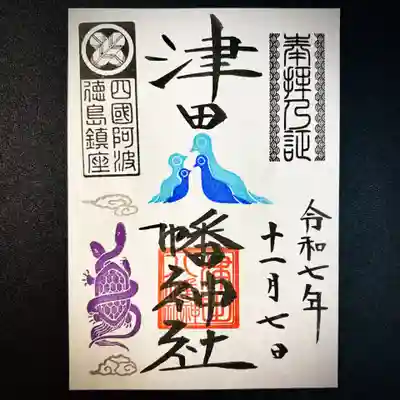 奉拝乃証
津田八幡神社
四國阿波
徳島鎮座
令和七年
十一月七日